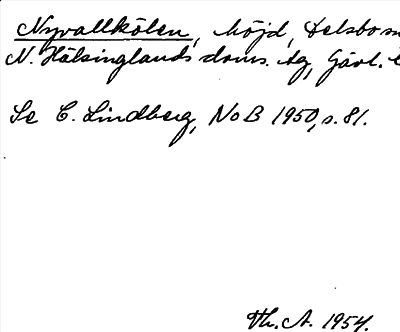 Nyvallkölen, höjd, Delsbo sn
N. Hälsinglands doms. tg, Gävl. l
Se C. Lindberg, NoB 1950, s. 81.
Th. A. 1954.